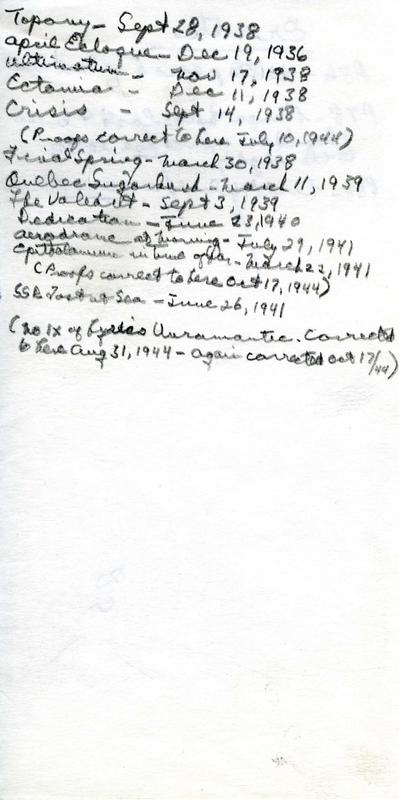 Topany - Sept 28, 1938
April Eclogue - Dec 19, 1936
Ultimatum - Nov 17, 1938
Ectomia - Dec 11, 1938
Crisis - Sept 14, 1938
(Proofs correct to here July 10, 1944)
Final Spring - March 30, 1938
Quebec Sugarbush - March 11, 1939
The Valedict - Sept 3, 1939
Dedication - June 23, 1940
Aerodrome at Morning - July 29, 1941
Epithalamium in time of War - March 1941
(Proofs correct to here Oct 17, 1944)
SSR Lost at Sea - June 26, 1941
(No IX of Lyrics Unromantic. Corrected
to here Aug 31, 1944 - again corrected Oct 17/44)